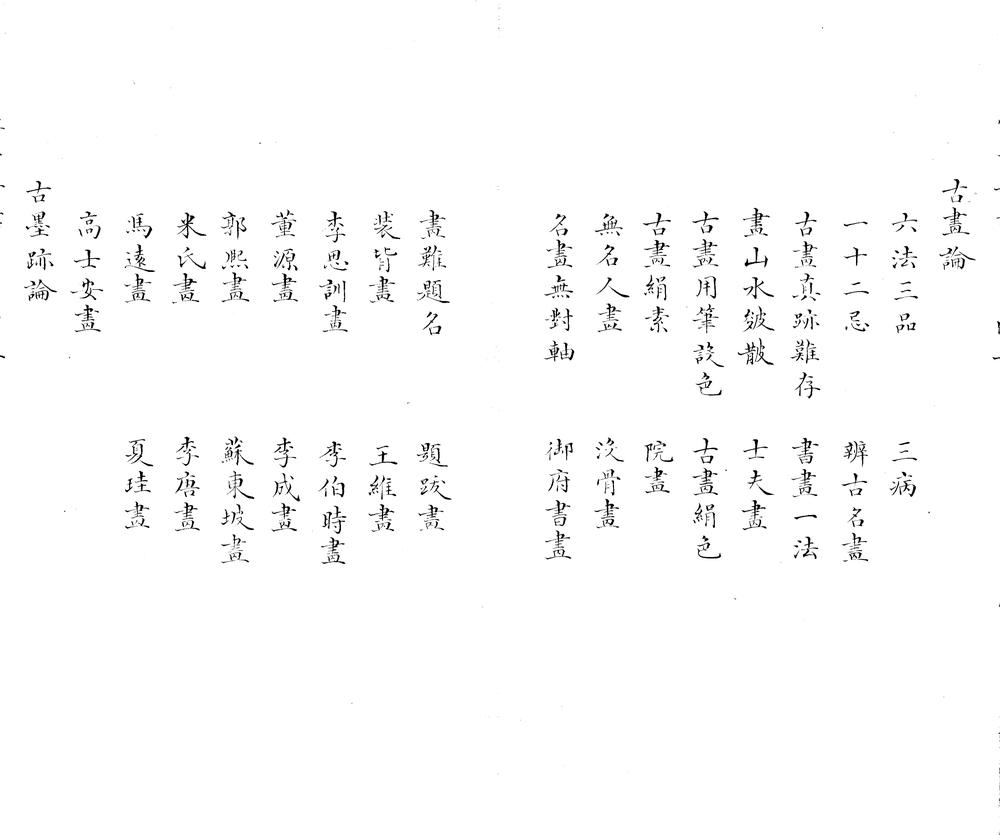 古畫論
六法三品　三病
一十二忌　辨古名畫
古畫真跡難存　書畫一法
畫山水皴皵　士夫畫
古畫用筆設色　古畫絹色
古畫絹素　院畫
無名人畫　沒骨畫
名畫無對軸　御府書畫
畫難題名　題跋畫
裝背畫　王維畫
李思訓畫　李伯時畫
董源畫　李成畫
郭熙畫　蘇東坡畫
米氏畫　李唐畫
馬遠畫　夏珪畫
高士安畫
古墨跡論